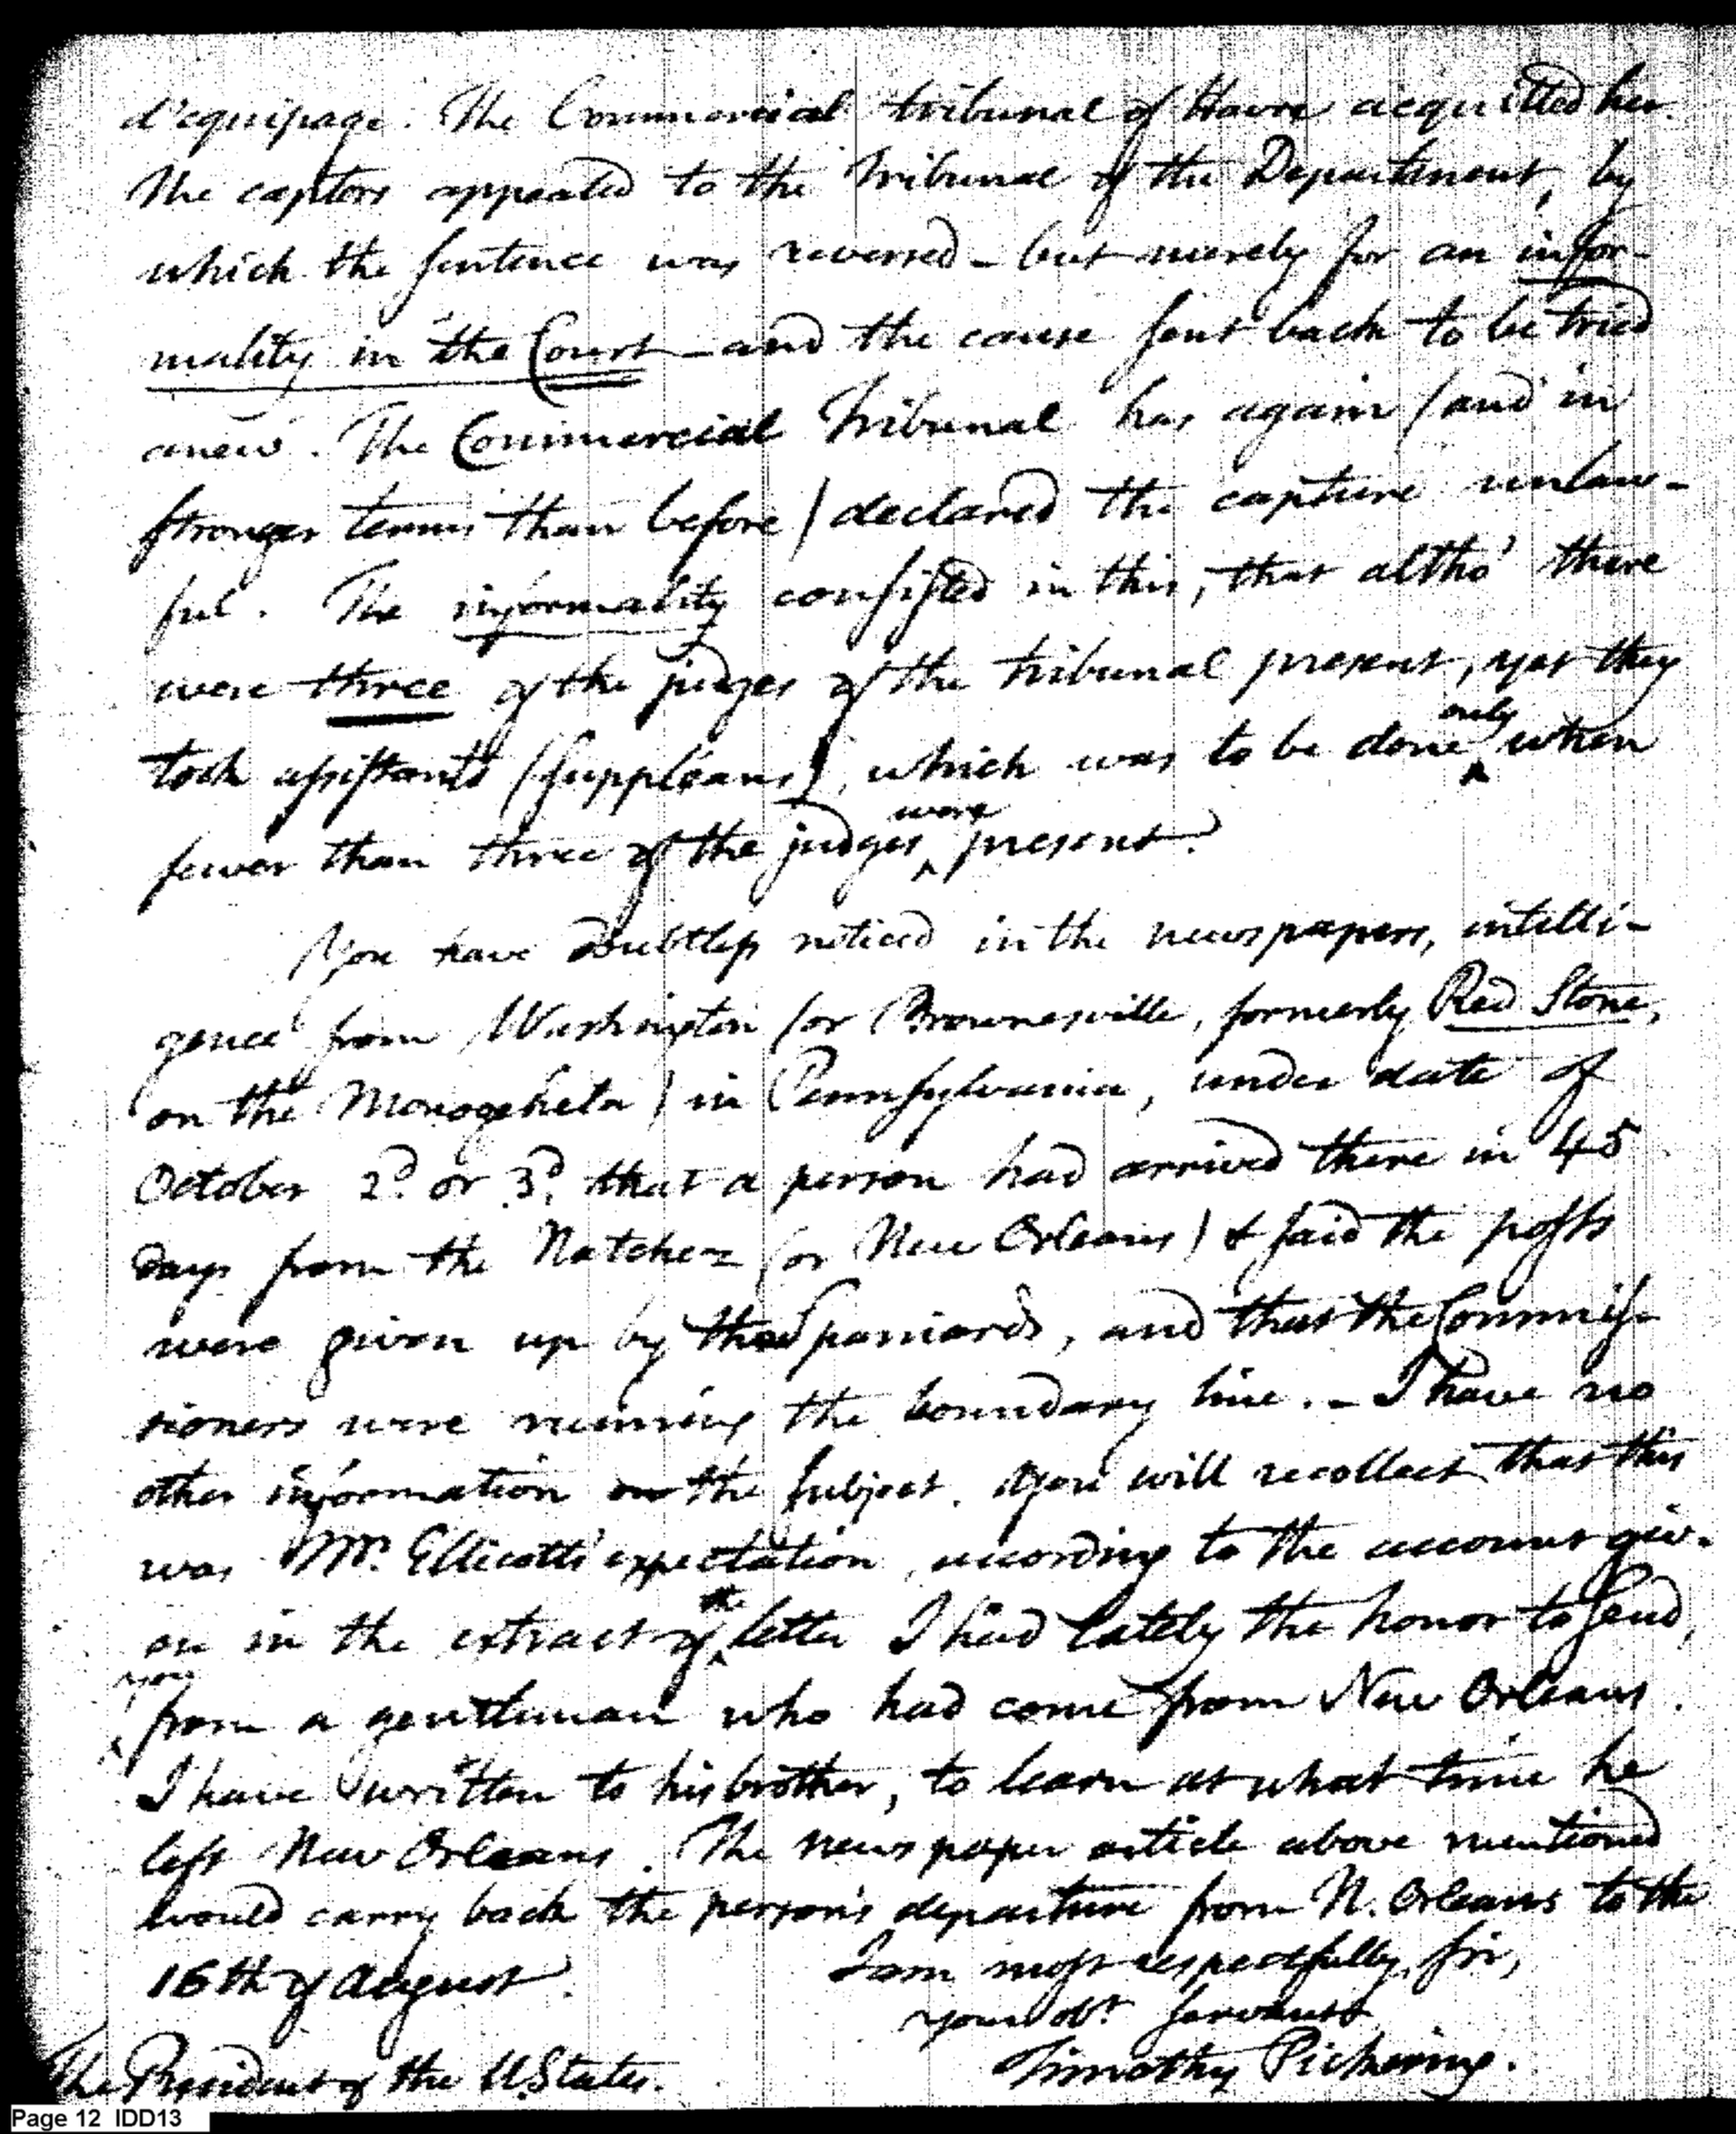 d'equipage. The Commercial tribunal of Havre acquitted her.
The captors appealed to the Tribunal of the Department, by
which the sentence was reversed – but merely for an infor-
mality in the Court – and the cause sent back to be tried
anew. The Commercial Tribunal has again (and in
stronger terms than before) declared the capture unlaw-
ful. The informality consisted in this, that altho' there
were three of the judges of the tribunal present, yet they
only
took assistants (suppléans), which was to be done when
were
fewer than three of the judges present.
You have doubtless noticed in the newspapers, intelli-
gence from Washington (or Brownesville, formerly Red Stone,
on the Monogehela) in Pennsylvania, under date of
October 2d. or 3d. that a person had arrived there in 45
days from the Natchez (or New Orleans) & said the posts
were given up by the Spaniards, and that the Commis-
sioners were running the boundary line. – I have no
other information on the subject. You will recollect that this
was Mr. Ellicott's expectation, according to the account giv-
the
en in the extract of letter I had lately the honor to send,
you
from a gentleman who had come from New Orleans.
I have written to his brother, to learn at what time he
left New Orleans. The newspaper article above mentioned
would carry back the person's departure from N. Orleans to the
16th of August.
I am most respectfully, sir,
your obt. servant
Timothy Pickering.
The President of the U.States.
Page 12 IDD13